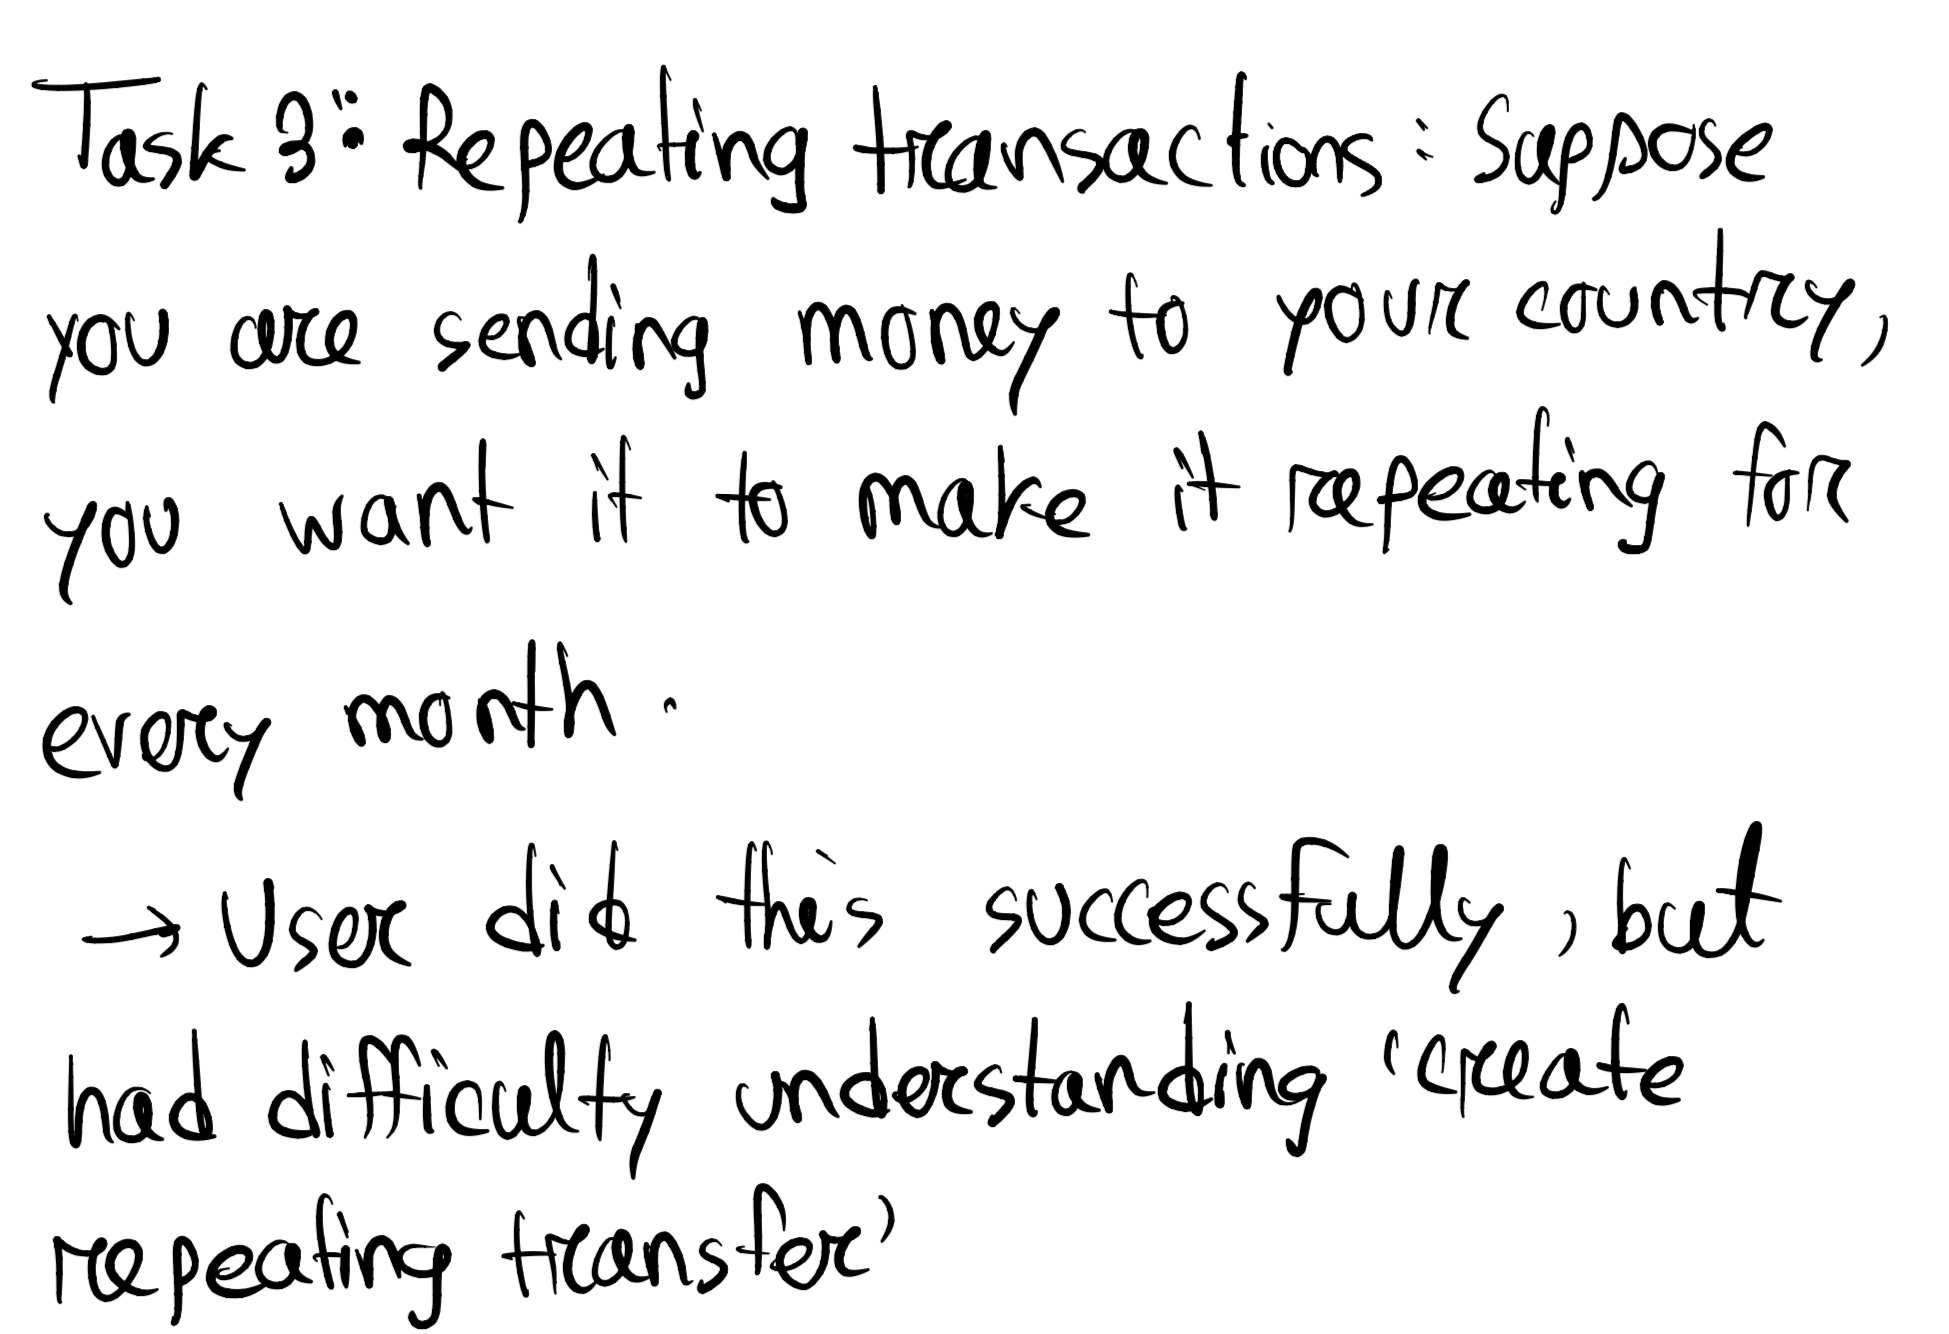 Task 3: Repeating transactions: Suppose
you are sending money to your country,
you want it to make it repeating for
every month.
→ User did this successfully, but
had difficulty understanding 'create
repeating transfer'